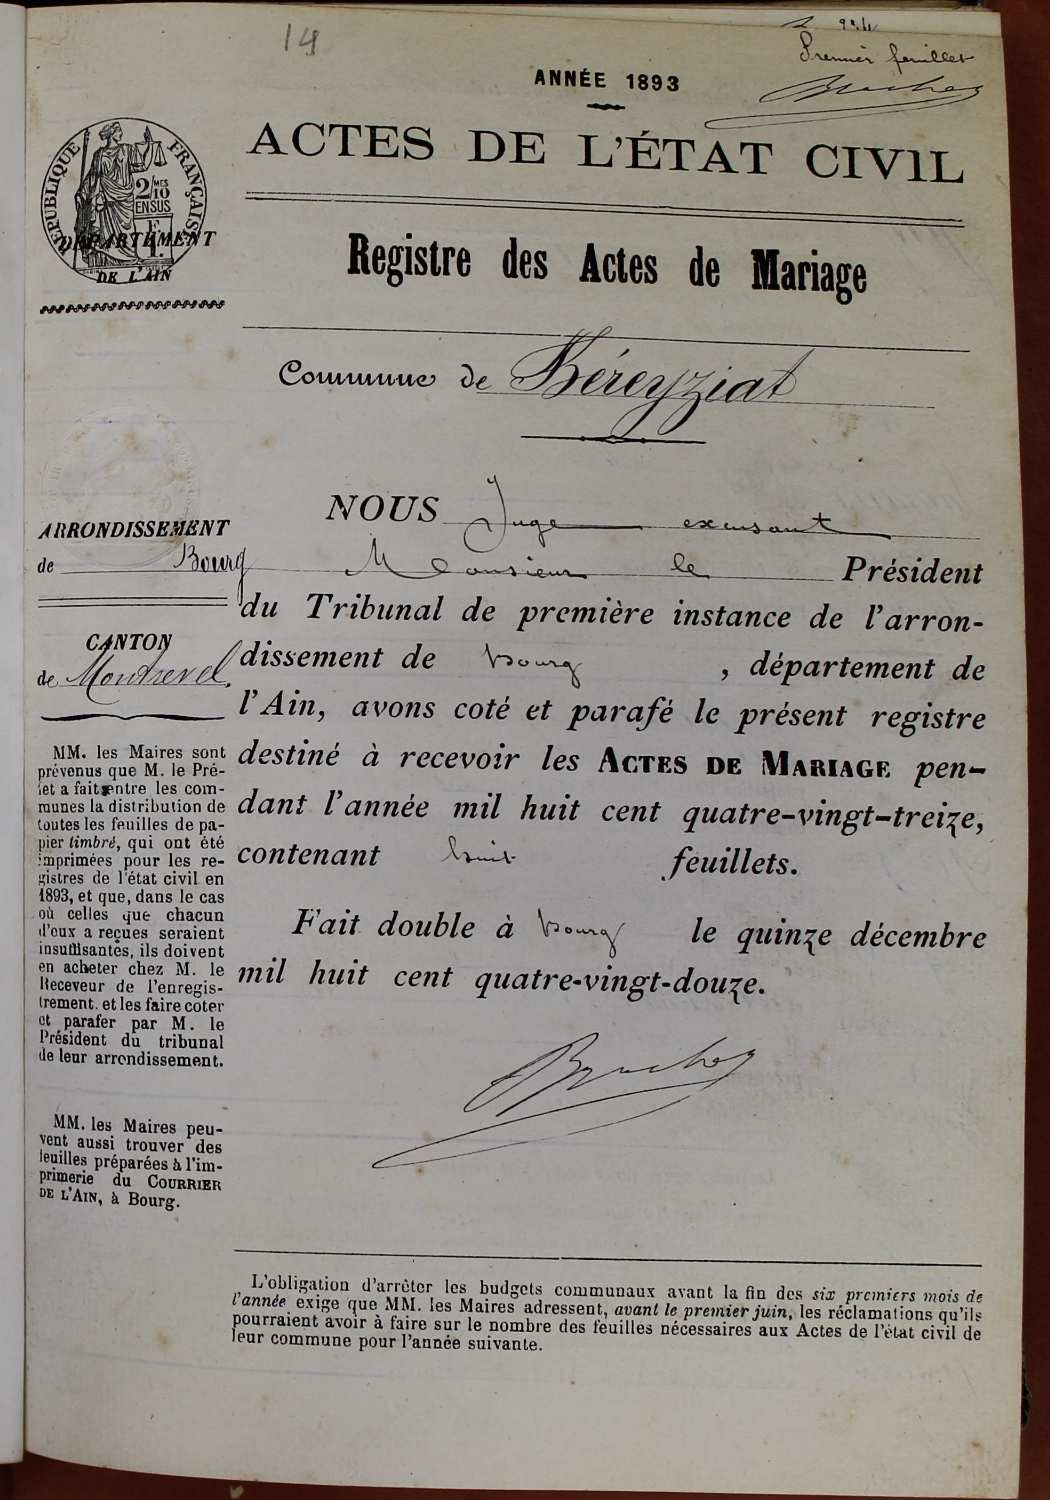 14
Premier feuillet
ANNÉE 1893
ACTES DE L'ÉTAT CIVIL
RÉPUBLIQUE FRANÇAISE
2/MES
10
EN SUS
DÉPARTEMENT
DE L'AIN
Registre des Actes de Mariage
Commune de Béreyziat
ARRONDISSEMENT
de Bourg
CANTON
de Montrevel.
MM. les Maires sont
prévenus que M. le Pré-
fet a fait entre les com-
munes la distribution de
toutes les feuilles de pa-
pier timbré, qui ont été
imprimées pour les re-
gistres de l'état civil en
1893, et que, dans le cas
où celles que chacun
d'eux a reçues seraient
insuffisantes, ils doivent
en acheter chez M. le
Receveur de l'enregis-
trement. et les faire coter
et parafer par M. le
Président du tribunal
de leur arrondissement.
MM. les Maires peu-
vent aussi trouver des
feuilles préparées à l'im-
primerie du COURRIER
DE L'AIN, à Bourg.
NOUS Juge excusant
Monsieur le Président
du Tribunal de première instance de l'arron-
dissement de Bourg, département de
l'Ain, avons coté et parafé le présent registre
destiné à recevoir les ACTES DE MARIAGE pen-
dant l'année mil huit cent quatre-vingt-treize,
contenant huit feuillets.
Fait double à Bourg le quinze décembre
mil huit cent quatre-vingt-douze.
L'obligation d'arrêter les budgets communaux avant la fin des six premiers mois de
l'année exige que MM. les Maires adressent, avant le premier juin, les réclamations qu'ils
pourraient avoir à faire sur le nombre des feuilles nécessaires aux Actes de l'état civil de
leur commune pour l'année suivante.